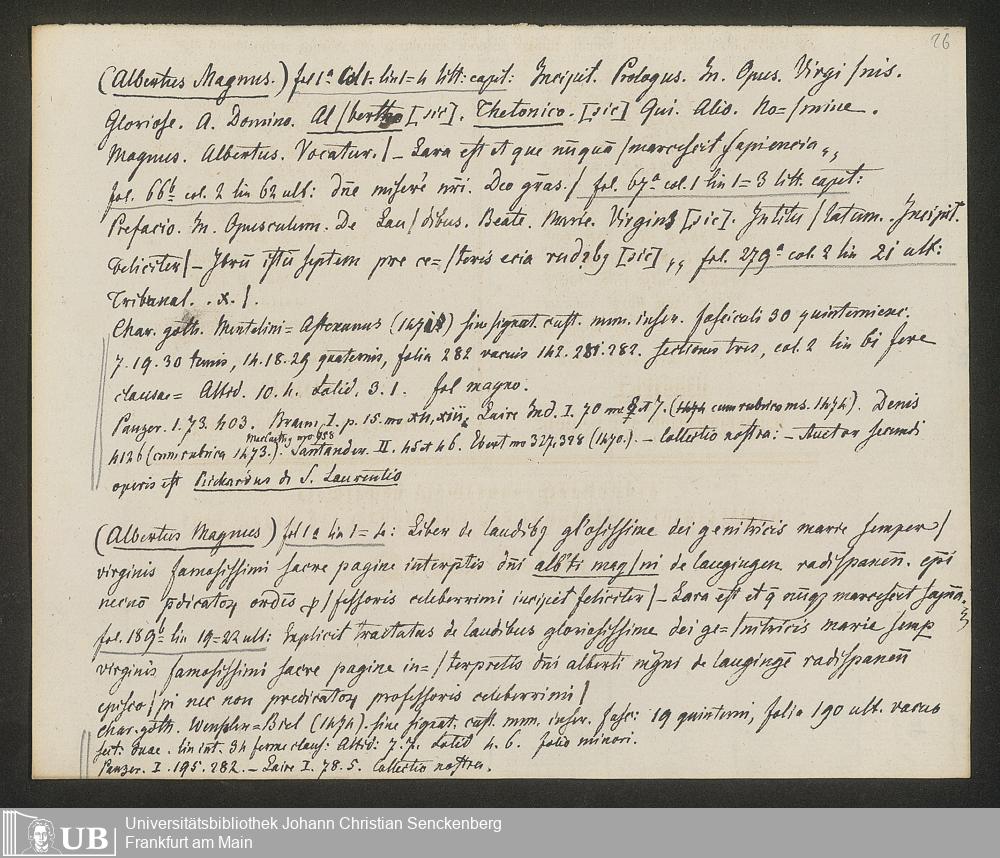 26
(Albertus Magnus.) fol 1ª col 1. lin 1=4 litt: capit: Incipit. Prologus. In. Opus. Virgi/nis.
Gloriose. A. Domino. Al/bertho [sic]. Thetonico. [sic] Qui. Alio. No=/mine.
Magnus. Albertus. Vocatur./ _ Lara est et que nūquā /marcescit sapiencia,,
fol. 66b col. 2 lin 62 ult: dñe misere nri. Deo grās./ fol. 67ª col. 1 lin 1=3 litt. capit:
Prefacio. In. Opusculum. De Lau/dibus. Beate. Marie. Virginis [sic]. Intitu/latum. Incipit.
Feliciter/_ septem pre ce=/teris [sic],, fol. 279ª col. 2 lin 21 ult:
Tribunal. .x./.
Char. goth. Mentelini= Astexanus sine signat. cust. num. inser. fasciculi 30 quinterniones.
7. 19. 30 ternis, 14. 18. 29 quaternis, folia 282 vacuis 142. 281. 282. sectiones tres, col. 2 lin 61 fere
clausae= Altid. 10. 4. Latid. 3. 1. fol magno.
Panzer. 1. 73. 403. Braun, I. p. 15. no XII, XIII, Laire Ind. I. 70 no 7. (1474 cum rubrico ms. 1474). Denis
4126 (cum rubrica 1473.). MacCarthy Santander. II. 45 et 46. Ebert no 327, 328 (1470.). _ Collectio nostra: _ Auctor secundi
operis est Richardus de S. Laurentio
(Albertus Magnus) fol 1ª lin 1= 4: Liber de laudibz glosissime dei genitricis marie semper/
virginis famosissimi sacre pagine interptis dni alb'ti mag/ni de laugingen radispanen. epi
necnō pdicatoz ordis p/fessoris celeberrimi incipit feliciter/_ Lara est et q nūqz marcescit sapna.
fol. 189b lin 19=22 ult: Explicit tractatus de laudibus gloriosissime dei ge=/nitricis marie semp
virginis famosissimi sacre pagine in=/terpretis dni alberti mgni de laugingē radispanen
episco/pi nec non predicatoz professoris celeberrimi/
char. goth. Wenssler=Biel (1474). sine signat. cust. num. inser. fasc: 19 quinterni, folia 190 ult. vacuo
sect: duae. lin int. 34 ferme claus: Altid: 7. 7. Latid 4. 6. folio minori.
Panzer. I. 195. 282. _ Laire I. 78. 5. Collectio nostra.
UB
Universitätsbibliothek Johann Christian Senckenberg
Frankfurt am Main